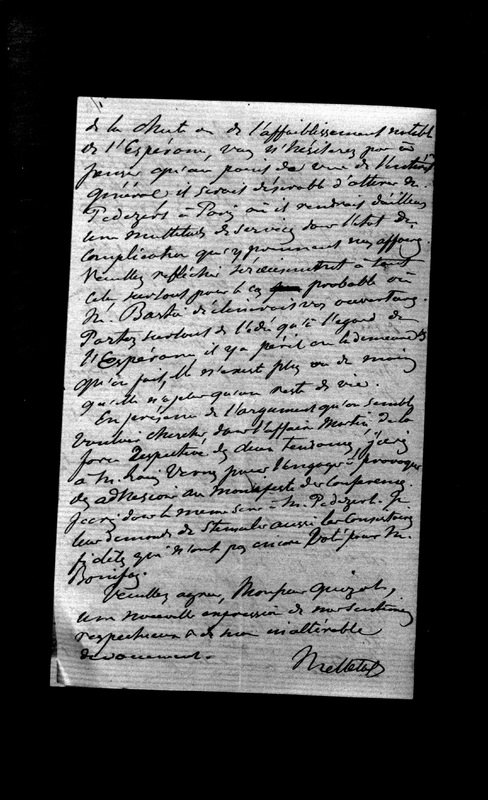 de la chute ou de l'affaiblissement notable
de l'Espérance, vous n'hésiterez pas à
penser qu'au point de vue de l'intérêt
général il serait désirable d'attirer M.
Pédezert à Paris où il rendrait d'ailleurs
une multitude de services dont l'état de
complication que prennent nos affaires
Veuillez réfléchir sérieusement à tout
cela surtout pour le cas probable où
M. Bartié déclinerait vos ouvertures.
Partez surtout de l'idée qu'à l'égard de
l'Espérance il y a péril en la demeure &
qu'en fait, elle n'existe plus ou du moins
qu'elle n'a plus qu'un reste de vie.
En présence de l'argument qu'on semble
vouloir chercher dans l'affaire Martin de la
force respective des deux tendances j'écris
à M. Louis Vernes pour l'engager à provoquer
des adhésions au manifeste des Conférences
J'écris dans le même sens à M. Pédezert. Je
leur demande de stimuler aussi les Consistoires
fidèles qui n'ont pas encore voté pour M.
Bonifas.
Veuillez agréer, Monsieur Guizot,
une nouvelle expression de mes sentiments
respectueux & de mon inaltérable
dévouement.
Mettetal